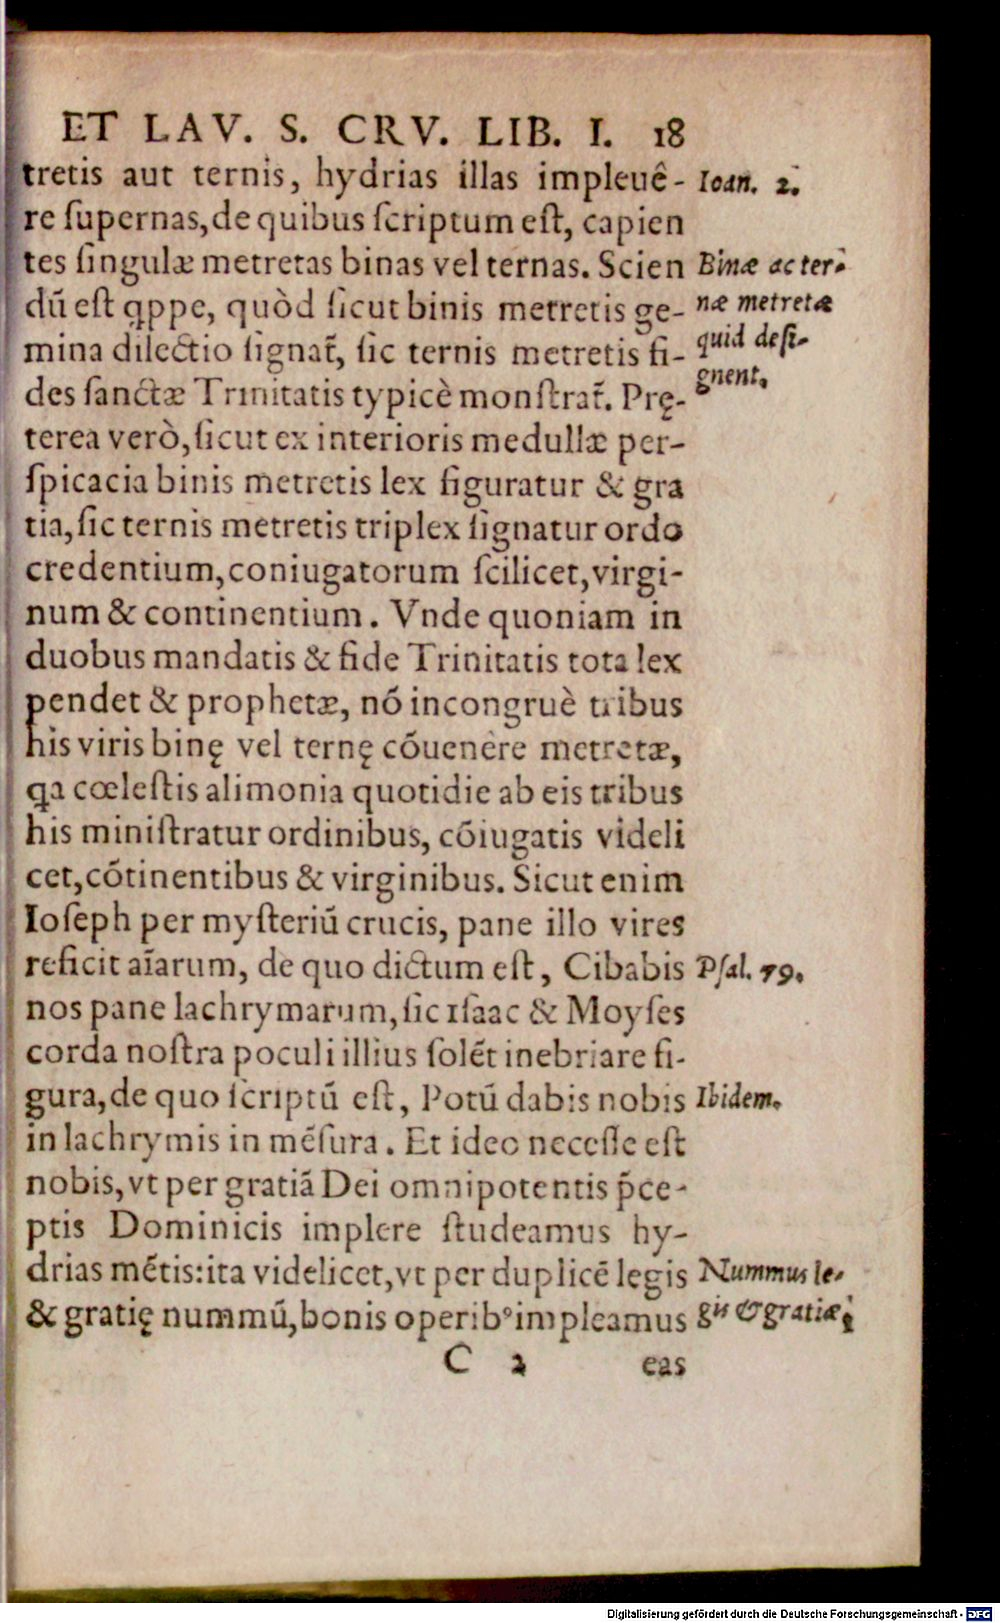 ET LAV. S. CRV. LIB. I. 18
tretis aut ternis, hydrias illas impleuê- Ioan. 2.
re ſupernas, de quibus ſcriptum eſt, capien
tes ſingulæ metretas binas vel ternas. Scien Binæ ac ter-
dũ eſt qꝓpe, quòd ſicut binis metretis ge- næ metretæ
mina dilectio ſignat̃, ſic ternis metretis fi- quid deſi-
des ſanctæ Trinitatis typicè monſtrat̃. Prę- gnent.
terea verò, ſicut ex interioris medullæ per-
ſpicacia binis metretis lex figuratur & gra
tia, ſic ternis metretis triplex ſignatur ordo
credentium, coniugatorum ſcilicet, virgi-
num & continentium. Vnde quoniam in
duobus mandatis & fide Trinitatis tota lex
pendet & prophetæ, nõ incongruè tribus
his viris binę vel ternę cõuenère metretæ,
qa cœleſtis alimonia quotidie ab eis tribus
his miniſtratur ordinibus, cõiugatis videli
cet, cõtinentibus & virginibus. Sicut enim
Ioſeph per myſteriũ crucis, pane illo vires
reficit aĩarum, de quo dictum eſt, Cibabis Pſal. 79.
nos pane lachrymarum, ſic Iſaac & Moyſes
corda noſtra poculi illius ſolẽt inebriare fi-
gura, de quo ſcriptũ eſt, Potũ dabis nobis Ibidem.
in lachrymis in mẽſura. Et ideo neceſſe eſt
nobis, vt per gratiã Dei omnipotentis p̃ce-
ptis Dominicis implere ſtudeamus hy-
drias mẽtis: ita videlicet, vt per duplicẽ legis Nummus le-
& gratię nummũ, bonis operibꝰ impleamus gis & gratiæ
C 2 eas
Digitalisierung gefördert durch die Deutsche Forschungsgemeinschaft - DFG